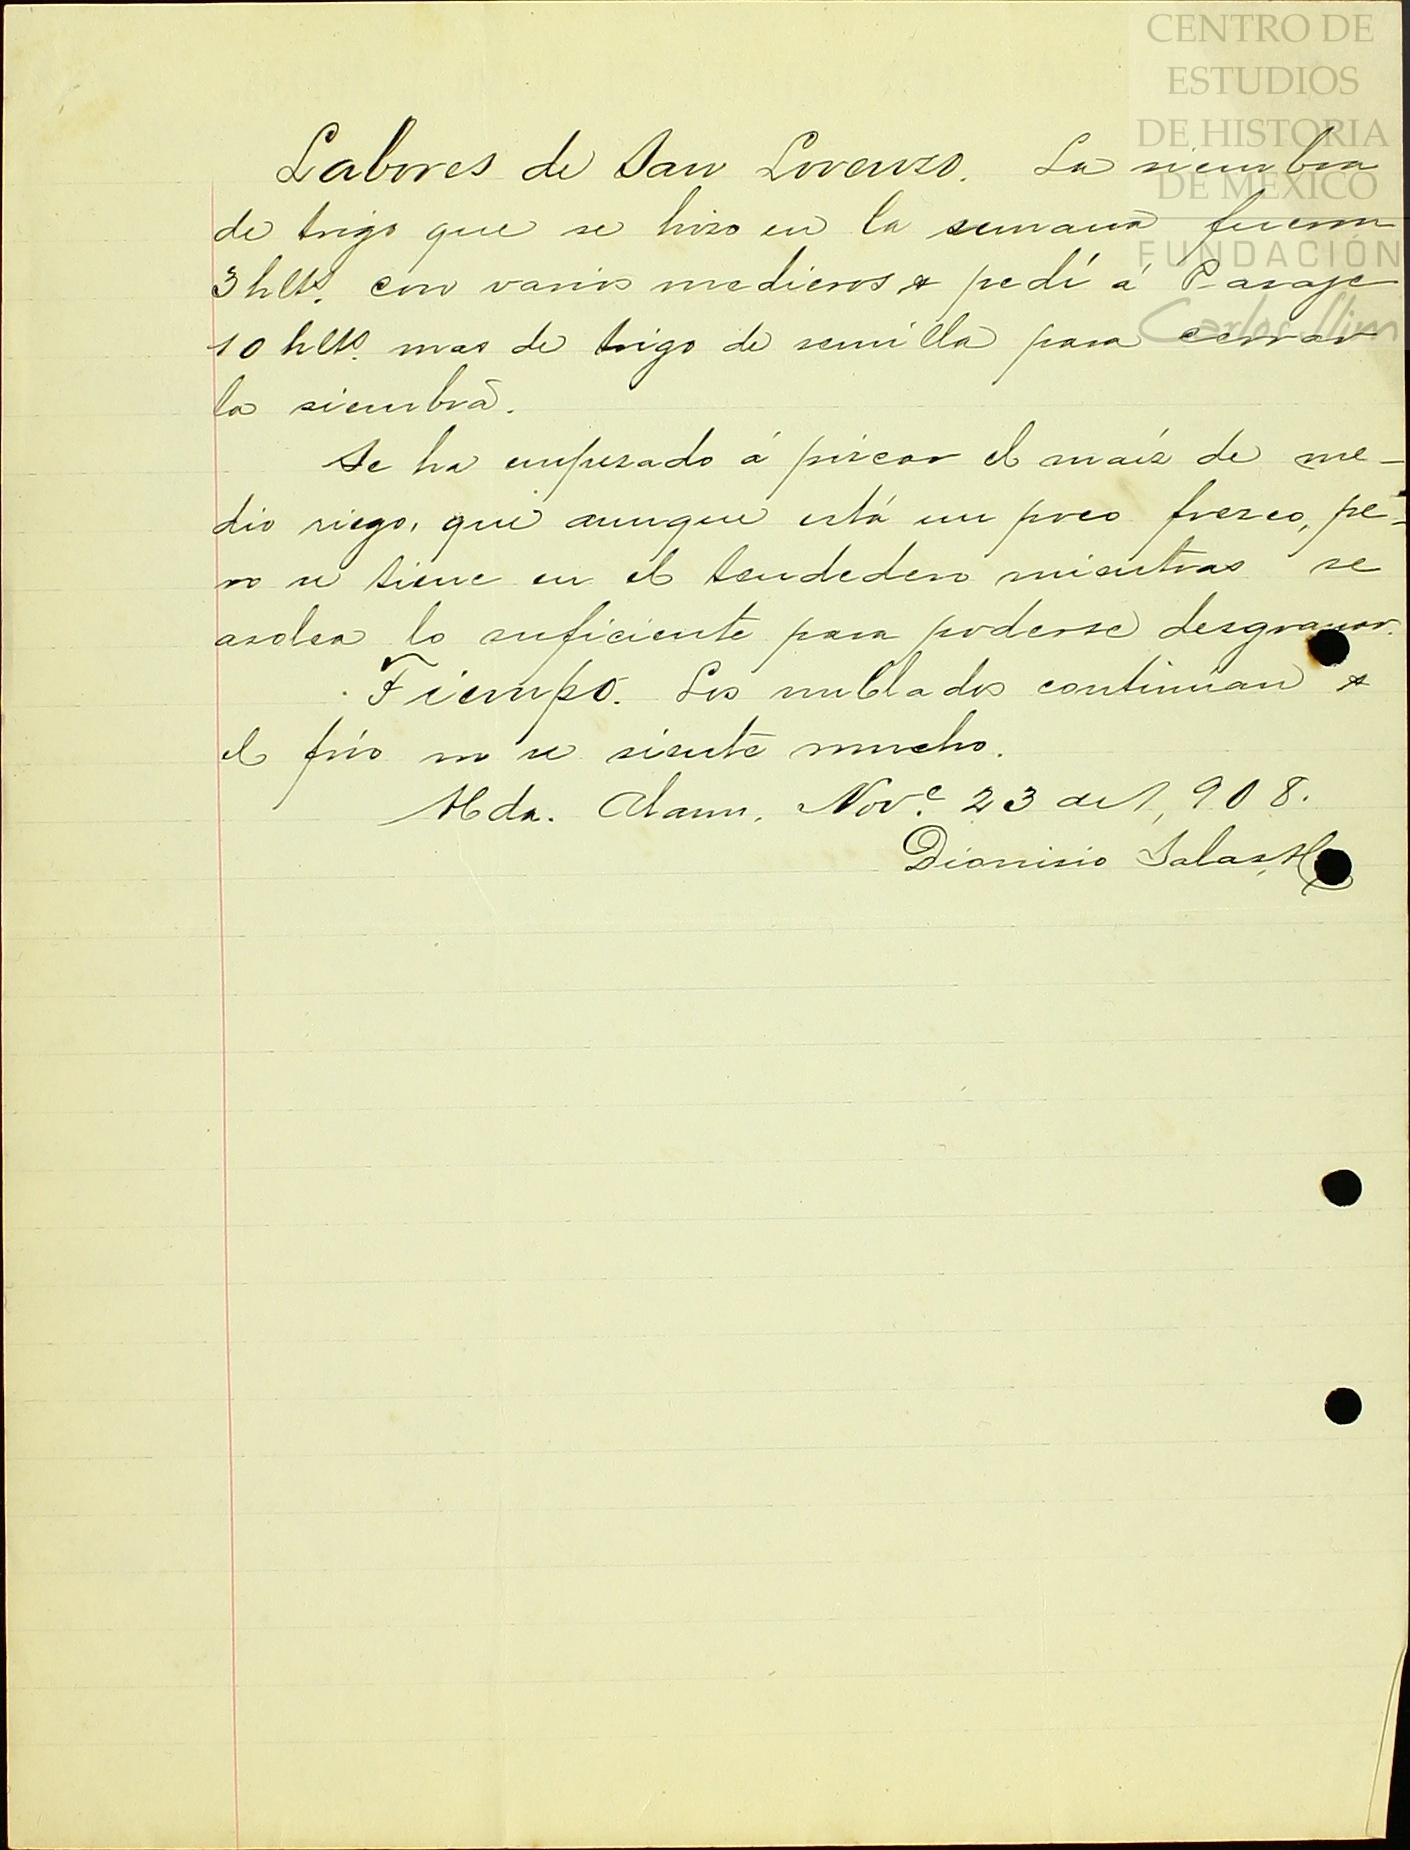 CENTRO DE
ESTUDIOS
DE HISTORIA
DE MÉXICO
FUNDACIÓN
Carlos Slim
Labores de San Lorenzo. La siembra
de trigo que se hizo en la semana fueron
3 hlts. con varios medieros & pedí á Pasaje
10 hlts. mas de trigo de semilla para cerrar
la siembra.
Se ha empesado á piscar el maíz de me-
dio riego, que aunque está un poco fresco, pe-
ro se tiene en el tendedero mientras se
asolea lo suficiente para poderse desgranar.
Tiempo. Los nublados continuan &
el frío no se siente mucho.
Hda. Nov.e 23 de 1,908.
Dionisio Salas